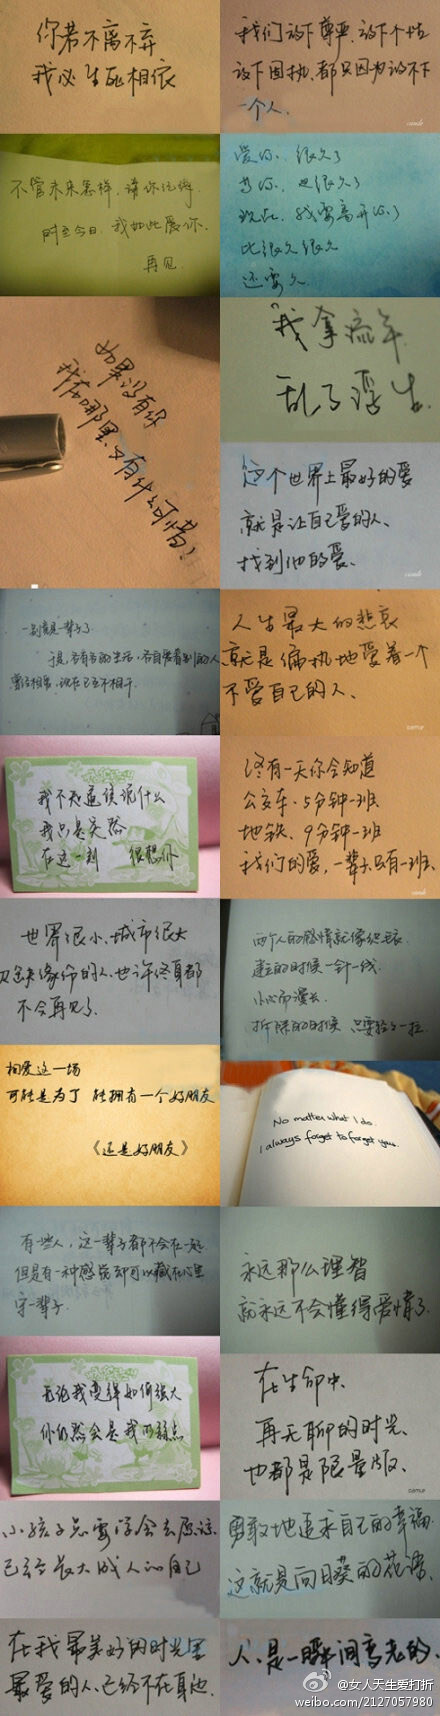 你若不离不弃
我必生死相依
我们放下尊严、放下个性
放下固执、都只因为放不下
一个人.
不管未来怎样，请你记得
时至今日，我如此爱你.
再见
爱你、很久了
等你、也很久了
现在、我要离开你了
比很久很久
还要久
如果没有你
我在哪里又有什么可惜
我拿流年
乱了浮生.
这个世界上最好的爱
就是让自己爱的人、
找到他的爱、
一别竟是一辈子了
于是、各有各的生活，各自爱着别的人
曾经相爱，现在已互不相干.
人生最大的悲哀
就是偏执地爱着一个
不爱自己的人、
我不知道该说什么
我只是突然
在这一刻 很想你
终有一天你会知道
公交车、5分钟一班
地铁、9分钟一班
我们的爱，一辈子只有一班、
世界很小、城市很大
没有缘份的人、也许终身都
不会再见了.
两个人的感情就像织毛衣
建立的时候一针一线
小心而漫长、
拆除的时候 只要轻轻一拉
相爱这一场
可能是为了 能拥有一个好朋友
《还是好朋友》
No matter what I do.
I always forget to forget you.
有些人，这一辈子都不会在一起
但是有一种感觉却可以藏在心里
守一辈子.
永远那么理智
就永远不会懂得爱情了.
无论我变得如何强大
你仍然会是我的弱点
在生命中
再无聊的时光、
也都是限量版、
小孩子总要学会去原谅
已经长大成人的自己
勇敢地追求自己的幸福
这就是向日葵的花语.
在我最美好的时光里
最爱的人、已经不在身边.
人、是一瞬间变老的、
@女人天生爱打折
weibo.com/2127057980